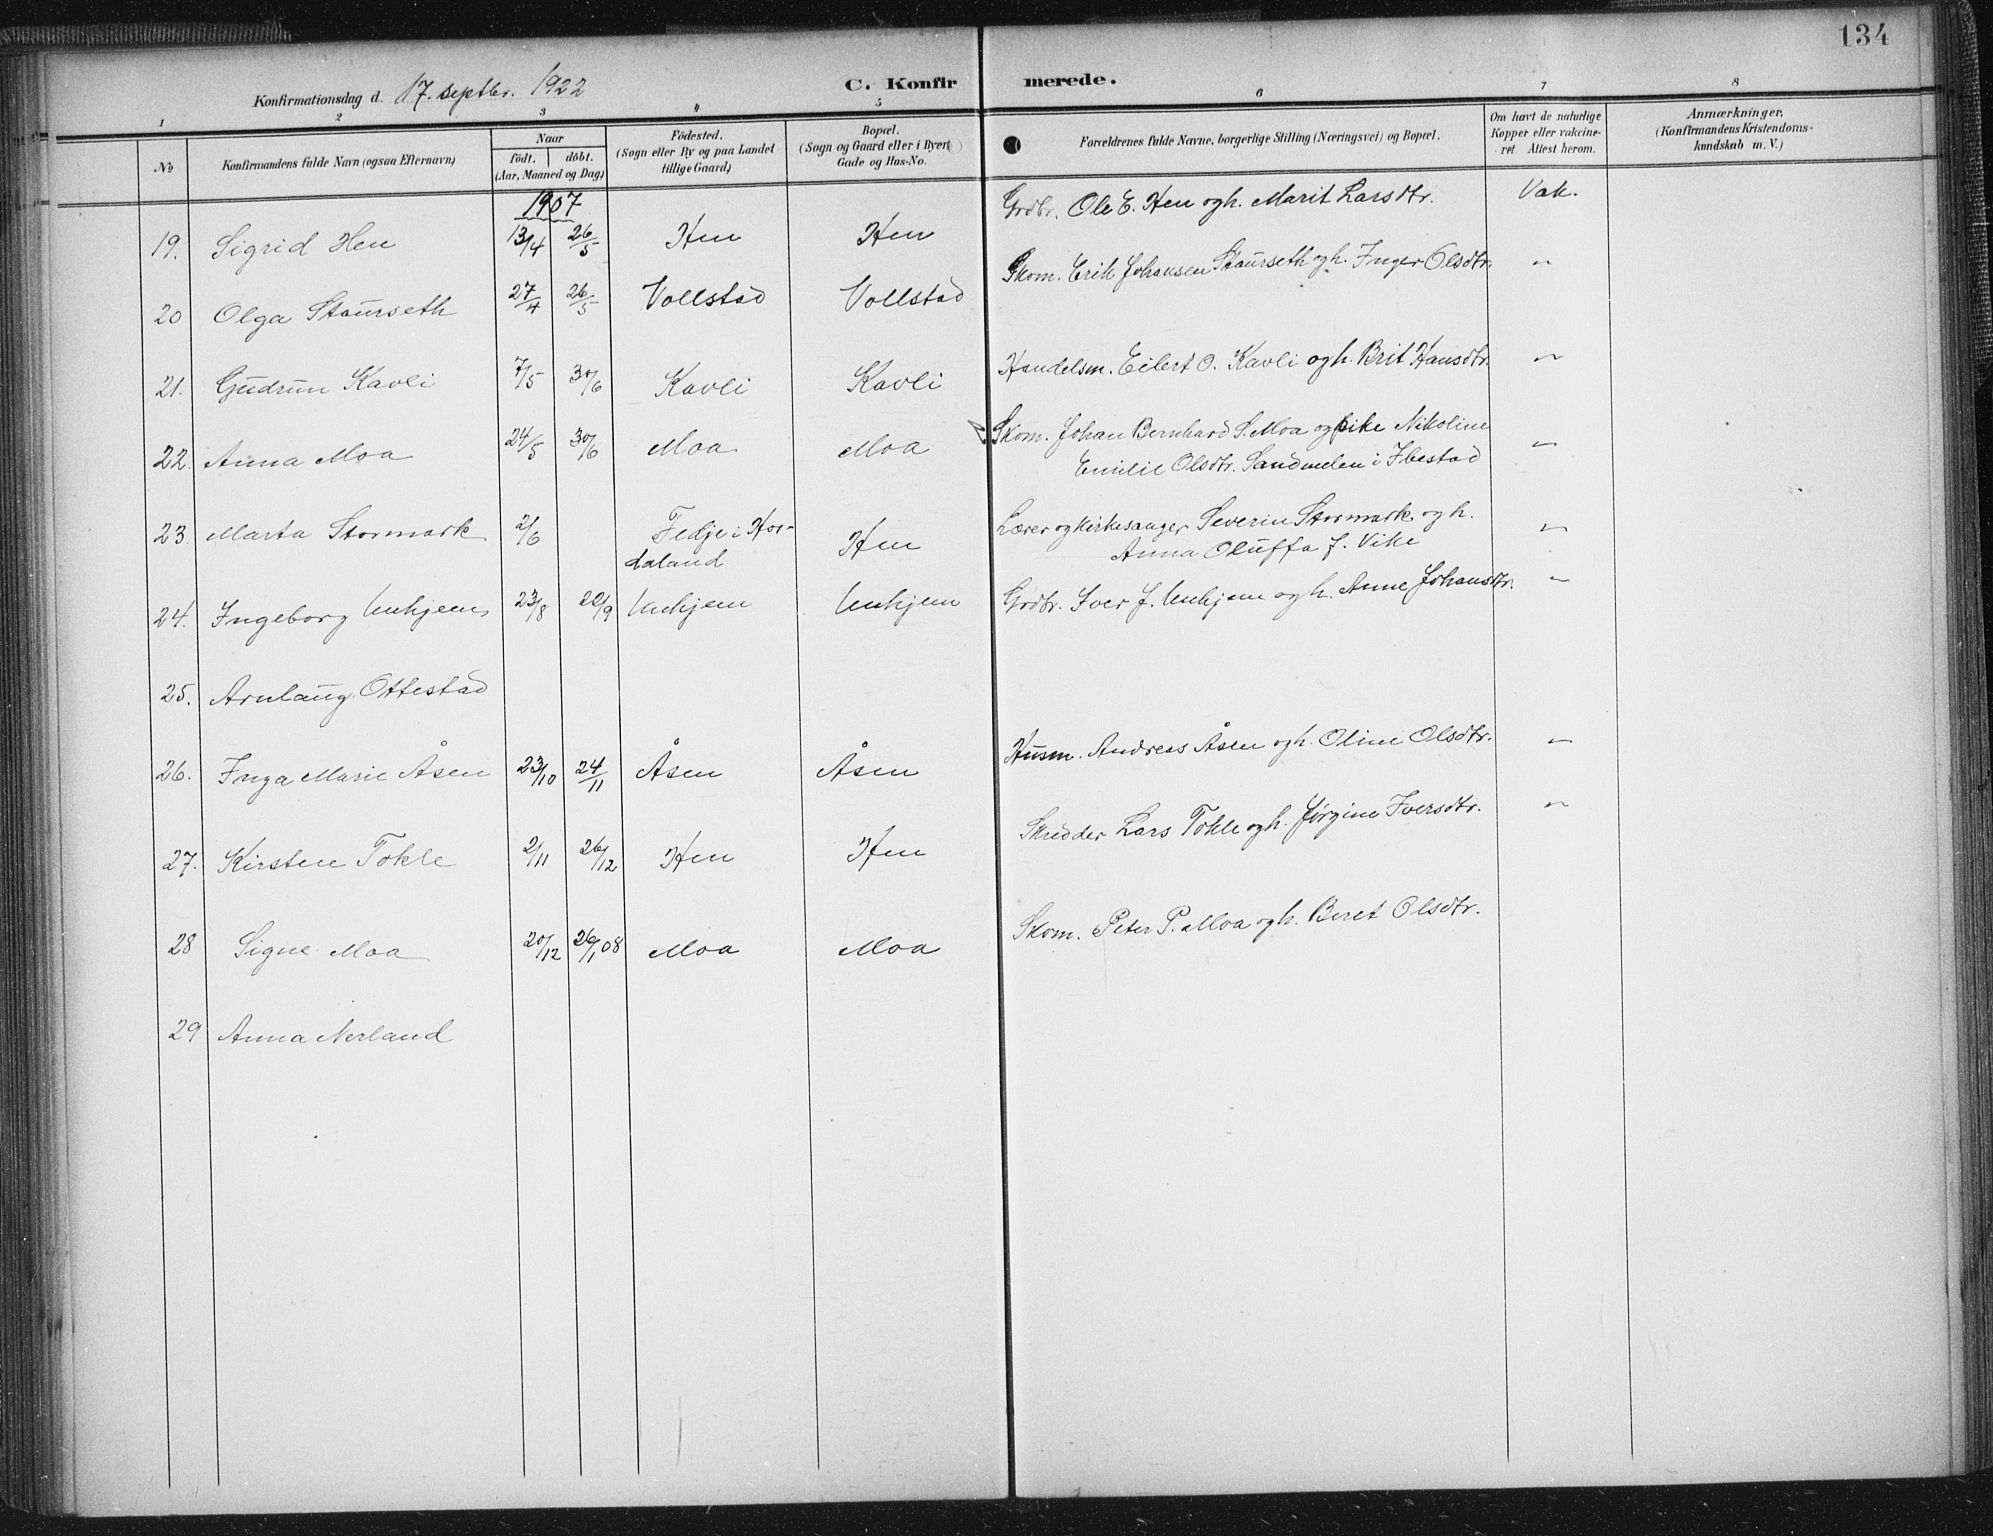 134
Konfirmationsdag d. 17. septbr. 1922
C. Konfirmerede.
1 2 3 4 5 6 7 8
No
Konfirmandens fulde Navn (ogsaa Efternavn)
Naar
födt. döbt.
(Aar, Maaned og Dag)
Födested.
(Sogn eller By og paa Landet
tillige Gaard)
Bopæl.
(Sogn og Gaard eller i Byen
Gade og Hus-No.)
Forældrenes fulde Navne, borgerlige Stilling (Næringsvei) og Bopæl.
Om havt de naturlige
Kopper eller vakcine-
ret. Attest herom.
Anmærkninger,
(Konfirmandens Kristendoms-
kundskab m. V.)
1907
19. Sigrid Hen 13/4 26/5 Hen Hen Grdbr. Ole E. Hen og h. Marit Larsdtr. Vak.
20 Olga Staurseth 27/4 26/5 Vollstad Vollstad Skom. Erik Johansen Staurseth og h. Inger Olsdtr. "
21. Gudrun Kavli 7/5 30/6 Kavli Kavli Handelsm. Eilert O. Kavli og h. Brit Hansdtr. "
22. Anna Moa 24/5 30/6 Moa Moa Skom. Johan Bernhard S. Moa og pike Nikoline
Emilie Olsdtr. Sandmelen i Ibestad "
23. Marta Stormark 2/6 Fedje i Hor-
daland Hen Lærer og kirkesanger Severin Stormark og h.
Anna Oluffa f. Vike "
24. Ingeborg Unhjem 23/8 22/9 Unhjem Unhjem Grdbr. Iver J. Unhjem og h. Anne Johansdtr. "
25. Arnlaug Ottestad
26. Inga Marie Åsen 23/10 24/11 Åsen Åsen Husm. Andreas Åsen og h. Oline Olsdtr. "
27. Kirsten Tokle 2/11 26/12 Hen Hen Skredder Lars Tokle og h. Jørgine Iversdtr. "
28 Signe Moa 20/12 26/1 08 Moa Moa Skom. Peter P. Moa og h. Beret Olsdtr.
29 Anna Nerland